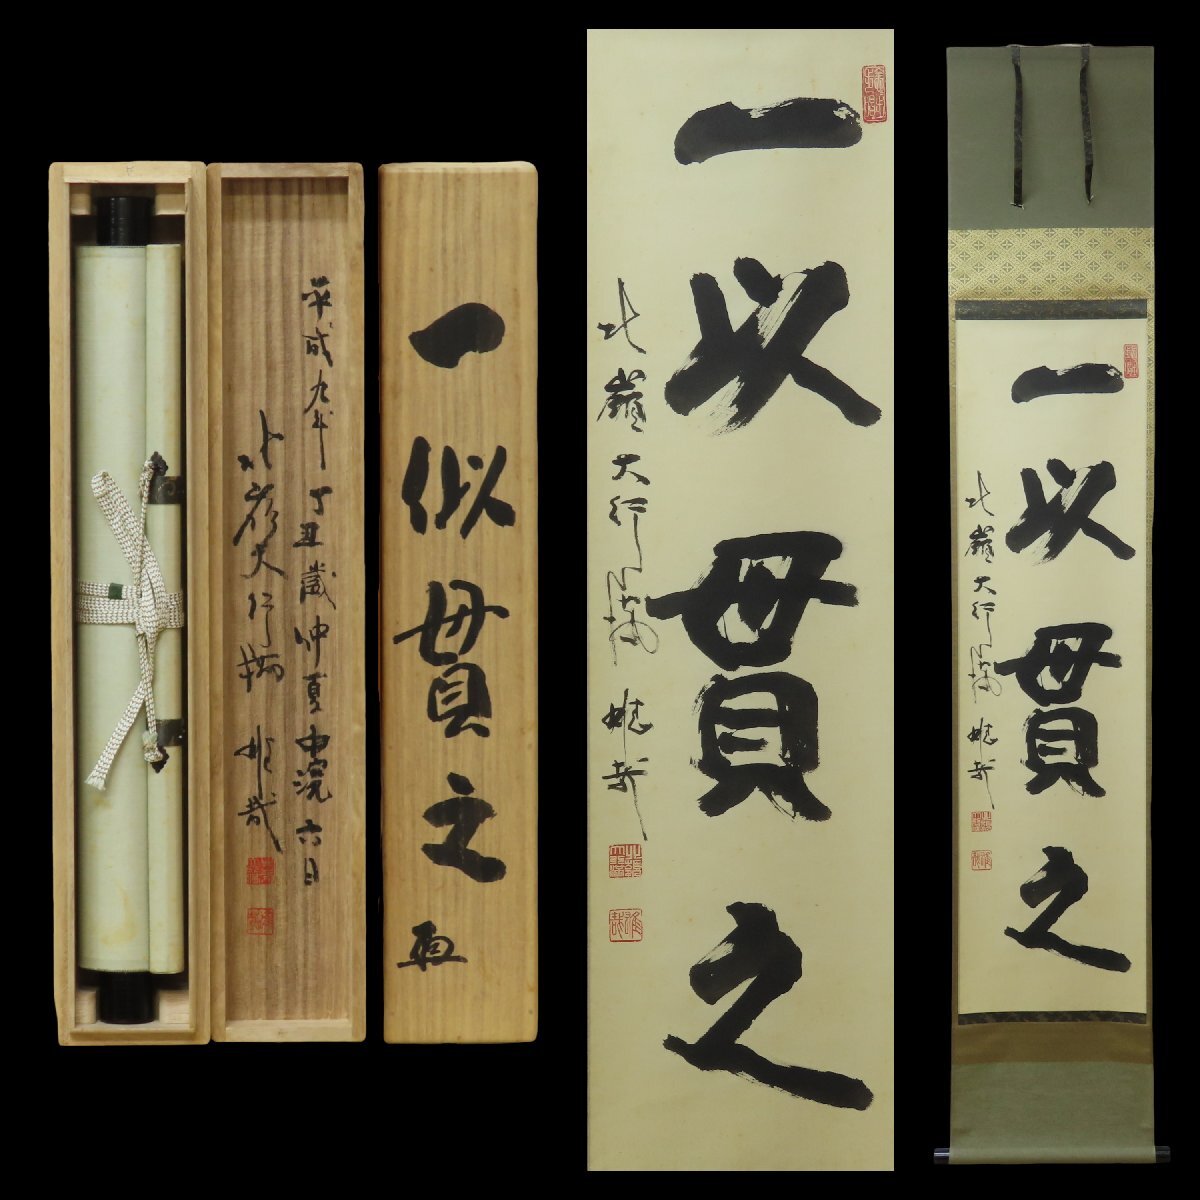 平成九年丁丑歳仲夏中浣六日
北嶺大行満 雄哉
一以貫之
一以貫之
北嶺大行満 雄哉
雄哉
一以貫之
北嶺大行満 雄哉